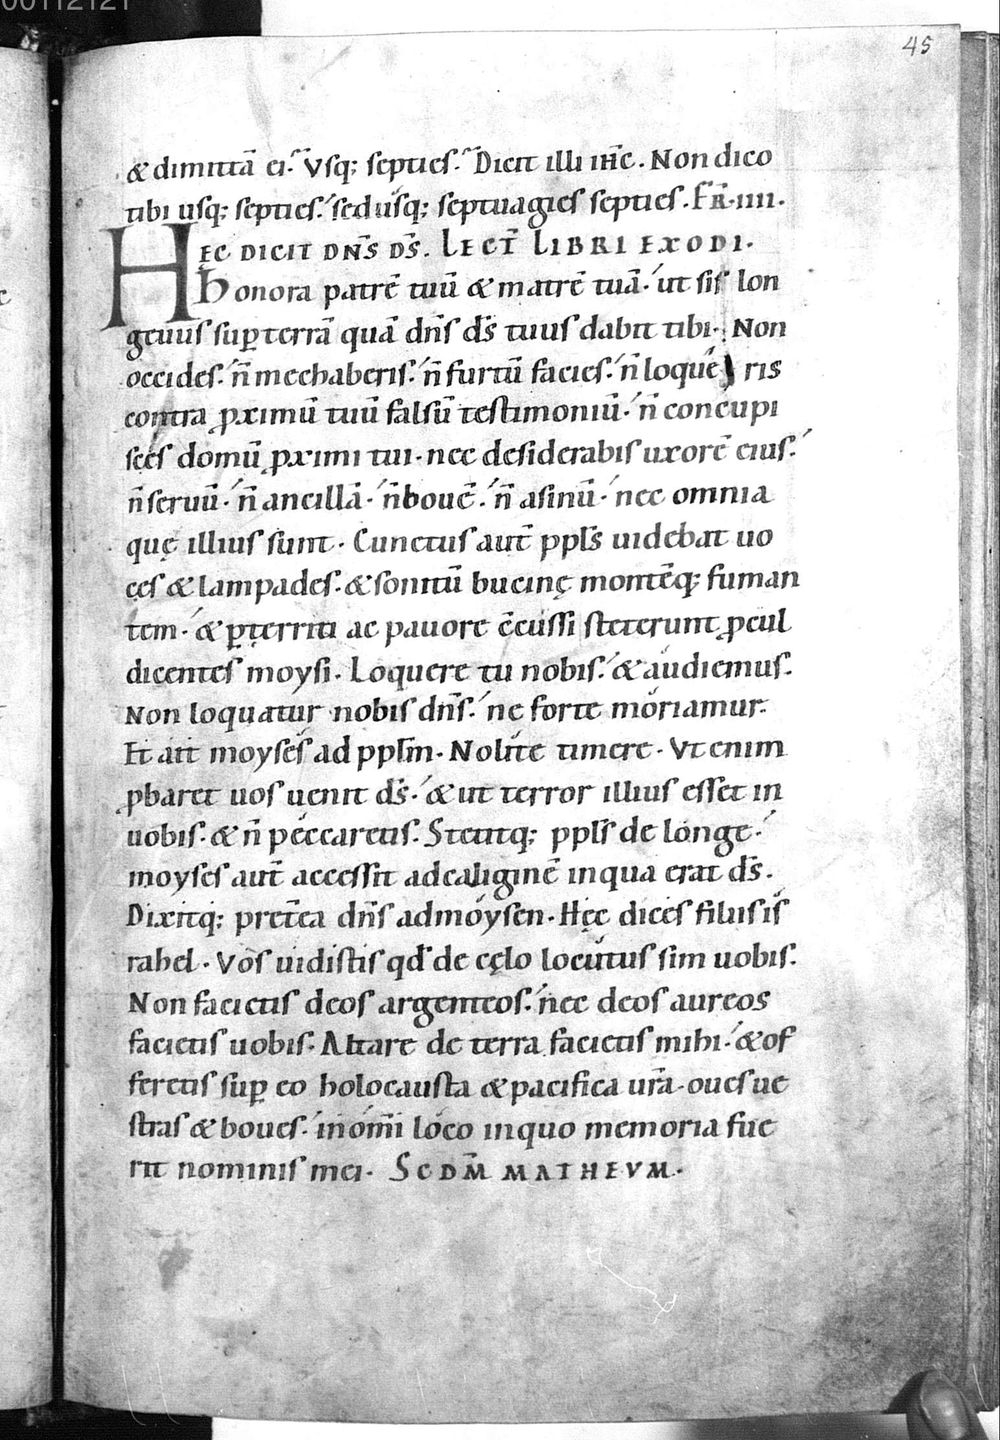 00112121
45
& dimittā ei. Vsq; septies. Dicit illi ih̄c. Non dico
tibi usq; septies. sed usq; septuagies septies. FR̄. IIII.
HĘC DICIT DN̄S DS̄. LECT̄ LIBRI EXODI.
Honora patrē tuū & matrē tuā. ut sis lon
geuus suꝑ terrā quā dn̄s ds̄ tuus dabit tibi. Non
occides. n̄ mechaberis. n̄ furtū facies. n̄ loque ris
contra ꝓximū tuū falsū testimoniū. n̄ concupi
sces domū ꝓximi tui. nec desiderabis uxorē eius.
n̄ seruū. n̄ ancillā. n̄ bouē. n̄ asinū. nec omnia
quę illius sunt. Cunctus aut̄ ppl̄s uidebat uo
ces & lampades. & sonitū bucinę montēq; fuman
tem. & ꝑterriti ac pauore c̄cussi steterunt ꝓcul
dicentes moysi. Loquere tu nobis. & audiemus.
Non loquatur nobis dn̄s. ne forte moriamur.
Et ait moyses ad ppl̄m. Nolite timere. Vt enim
ꝓbaret uos uenit ds̄. & ut terror illius esset in
uobis. & n̄ peccaretis. Stetitq; ppl̄s de longe.
moyses aut̄ accessit ad caliginē in qua erat ds̄.
Dixitq; pret̄ea dn̄s ad moysen. Hęc dices filiis is
rahel. Vos uidistis qd̄ de cęlo locutus sim uobis.
Non facietis deos argenteos. nec deos aureos
facietis uobis. Altare de terra facietis mihi. & of
feretis suꝑ eo holocausta & pacifica ur̄a. oues ue
stras & boues. in om̄i loco in quo memoria fue
rit nominis mei. SCDM̄ MATHEVM.